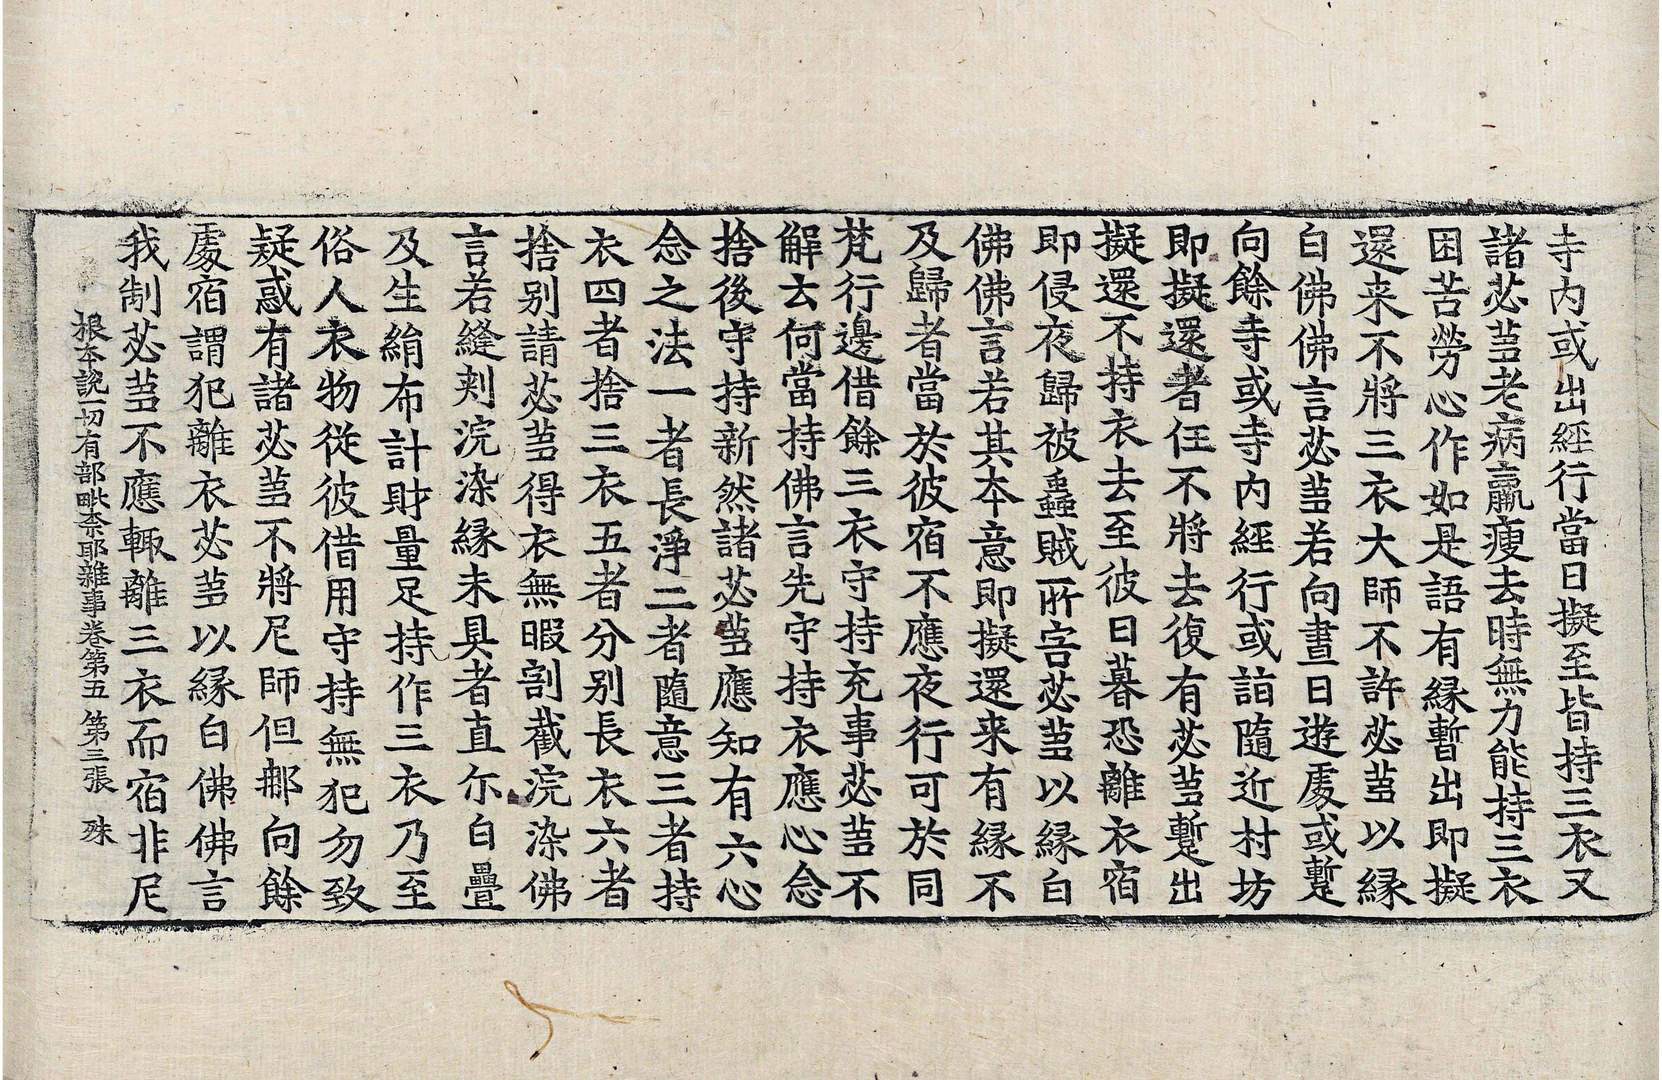 寺内或出經行當日擬至皆持三衣又
諸苾蒭老病羸瘦去時無力能持三衣
困苦勞心作如是語有縁暫出即擬
還来不將三衣大師不許苾蒭以縁
白佛佛言苾蒭若向晝日遊處或蹔
向餘寺或寺内經行或詣隨近村坊
即擬還者任不將去復有苾蒭蹔出
擬還不持衣去至彼日暮恐離衣宿
即侵夜歸被蟲賊所害苾蒭以縁白
佛佛言若其本意即擬還来有縁不
及歸者當於彼宿不應夜行可於同
梵行邊借餘三衣守持充事苾蒭不
解云何當持佛言先守持衣應心念
捨後守持新然諸苾蒭應知有六心
念之法一者長淨二者隨意三者持
衣四者捨三衣五者分别長衣六者
捨别請苾蒭得衣無暇割截浣染佛
言若縫刾浣染縁未具者直尒白疊
及生絹布計財量足持作三衣乃至
俗人衣物従彼借用守持無犯勿致
疑惑有諸苾蒭不將尼師但那向餘
處宿謂犯離衣苾蒭以縁白佛佛言
我制苾蒭不應輙離三衣而宿非尼
根本說一切有部毗奈耶雜事卷第五 第三張 殊